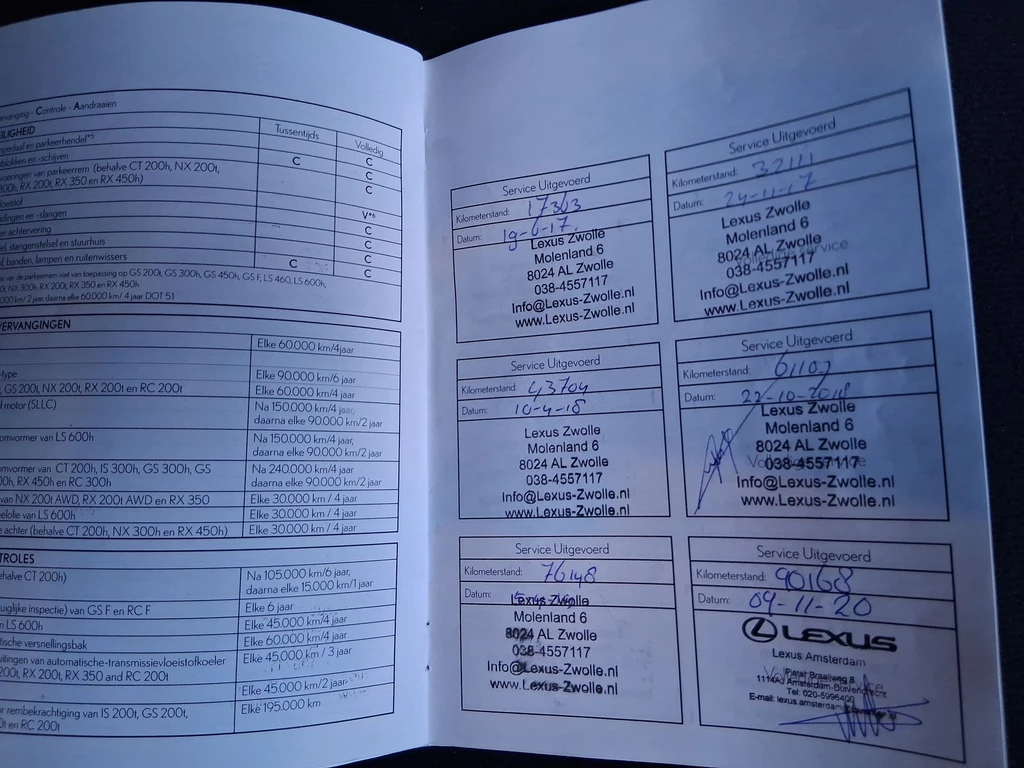 ervanging - Controle - Aandraaien
EILIGHEID
Tussentijds
Volledig
mpedaal en parkeerhendel*5
C
mblokken en -schijven
C
C
voeringen van parkeerrem (behalve CT 200h, NX 200t,
C
00h, RX 200t, RX 350 en RX 450h)
loeistof
V*6
dingen en -slangen
C
en achtervering
C
el, stangenstelsel en stuurhuis
C
el, banden, lampen en ruitenwissers
C
C
e van de parkeerrem niet van toepassing op GS 200t, GS 300h, GS 450h, GS F, LS 460, LS 600h,
0t, NX 300h, RX 200t, RX 350 en RX 450h
000 km/ 2 jaar, daarna elke 60.000 km/ 4 jaar DOT 5.1
VERVANGINGEN
Elke 60.000 km/4jaar
-type
Elke 90.000 km/6 jaar
, GS 200t, NX 200t, RX 200t en RC 200t
Elke 60.000 km/4 jaar
l motor (SLLC)
Na 150.000 km/4 jaar,
daarna elke 90.000 km/2 jaar
omvormer van LS 600h
Na 150.000 km/4 jaar,
daarna elke 90.000 km/2 jaar
omvormer van CT 200h, IS 300h, GS 300h, GS
0h, RX 450h en RC 300h
Na 240.000 km/4 jaar
daarna elke 90.000 km/2 jaar
van NX 200t AWD, RX 200t AWD en RX 350
Elke 30.000 km / 4 jaar
elolie van LS 600h
Elke 30.000 km / 4 jaar
e achter (behalve CT 200h, NX 300h en RX 450h)
Elke 30.000 km / 4 jaar
TROLES
ehalve CT 200h)
Na 105.000 km/6 jaar,
daarna elke 15.000 km/1 jaar
uiglijke inspectie) van GS F en RC F
Elke 6 jaar
n LS 600h
Elke 45.000 km/4 jaar
tische versnellingsbak
Elke 60.000 km/4 jaar
uilingen van automatische-transmissievloeistofkoeler
200t, RX 200t, RX 350 and RC 200t
Elke 45.000 km / 3 jaar
Elke 45.000 km/2 jaar
r rembekrachtiging van IS 200t, GS 200t,
0t en RC 200t
Elke 195.000 km
Service Uitgevoerd
Kilometerstand: 17363
Datum: 19-6-17
Lexus Zwolle
Molenland 6
8024 AL Zwolle
038-4557117
Info@Lexus-Zwolle.nl
www.Lexus-Zwolle.nl
Service Uitgevoerd
Kilometerstand: 32111
Datum: 24-11-17
Lexus Zwolle
Molenland 6
8024 AL Zwolle
038-4557117
Info@Lexus-Zwolle.nl
www.Lexus-Zwolle.nl
Service Uitgevoerd
Kilometerstand: 43704
Datum: 10-4-18
Lexus Zwolle
Molenland 6
8024 AL Zwolle
038-4557117
Info@Lexus-Zwolle.nl
www.Lexus-Zwolle.nl
Service Uitgevoerd
Kilometerstand: 61103
Datum: 22-10-2018
Lexus Zwolle
Molenland 6
8024 AL Zwolle
038-4557117
Info@Lexus-Zwolle.nl
www.Lexus-Zwolle.nl
Service Uitgevoerd
Kilometerstand: 76148
Datum:
Lexus Zwolle
Molenland 6
8024 AL Zwolle
038-4557117
Info@Lexus-Zwolle.nl
www.Lexus-Zwolle.nl
Service Uitgevoerd
Kilometerstand: 90168
Datum: 09-11-20
LEXUS
Lexus Amsterdam
Pieter Braaijweg 8
1114AJ Amsterdam-Duivendrecht
Tel: 020-5996400
E-mail: